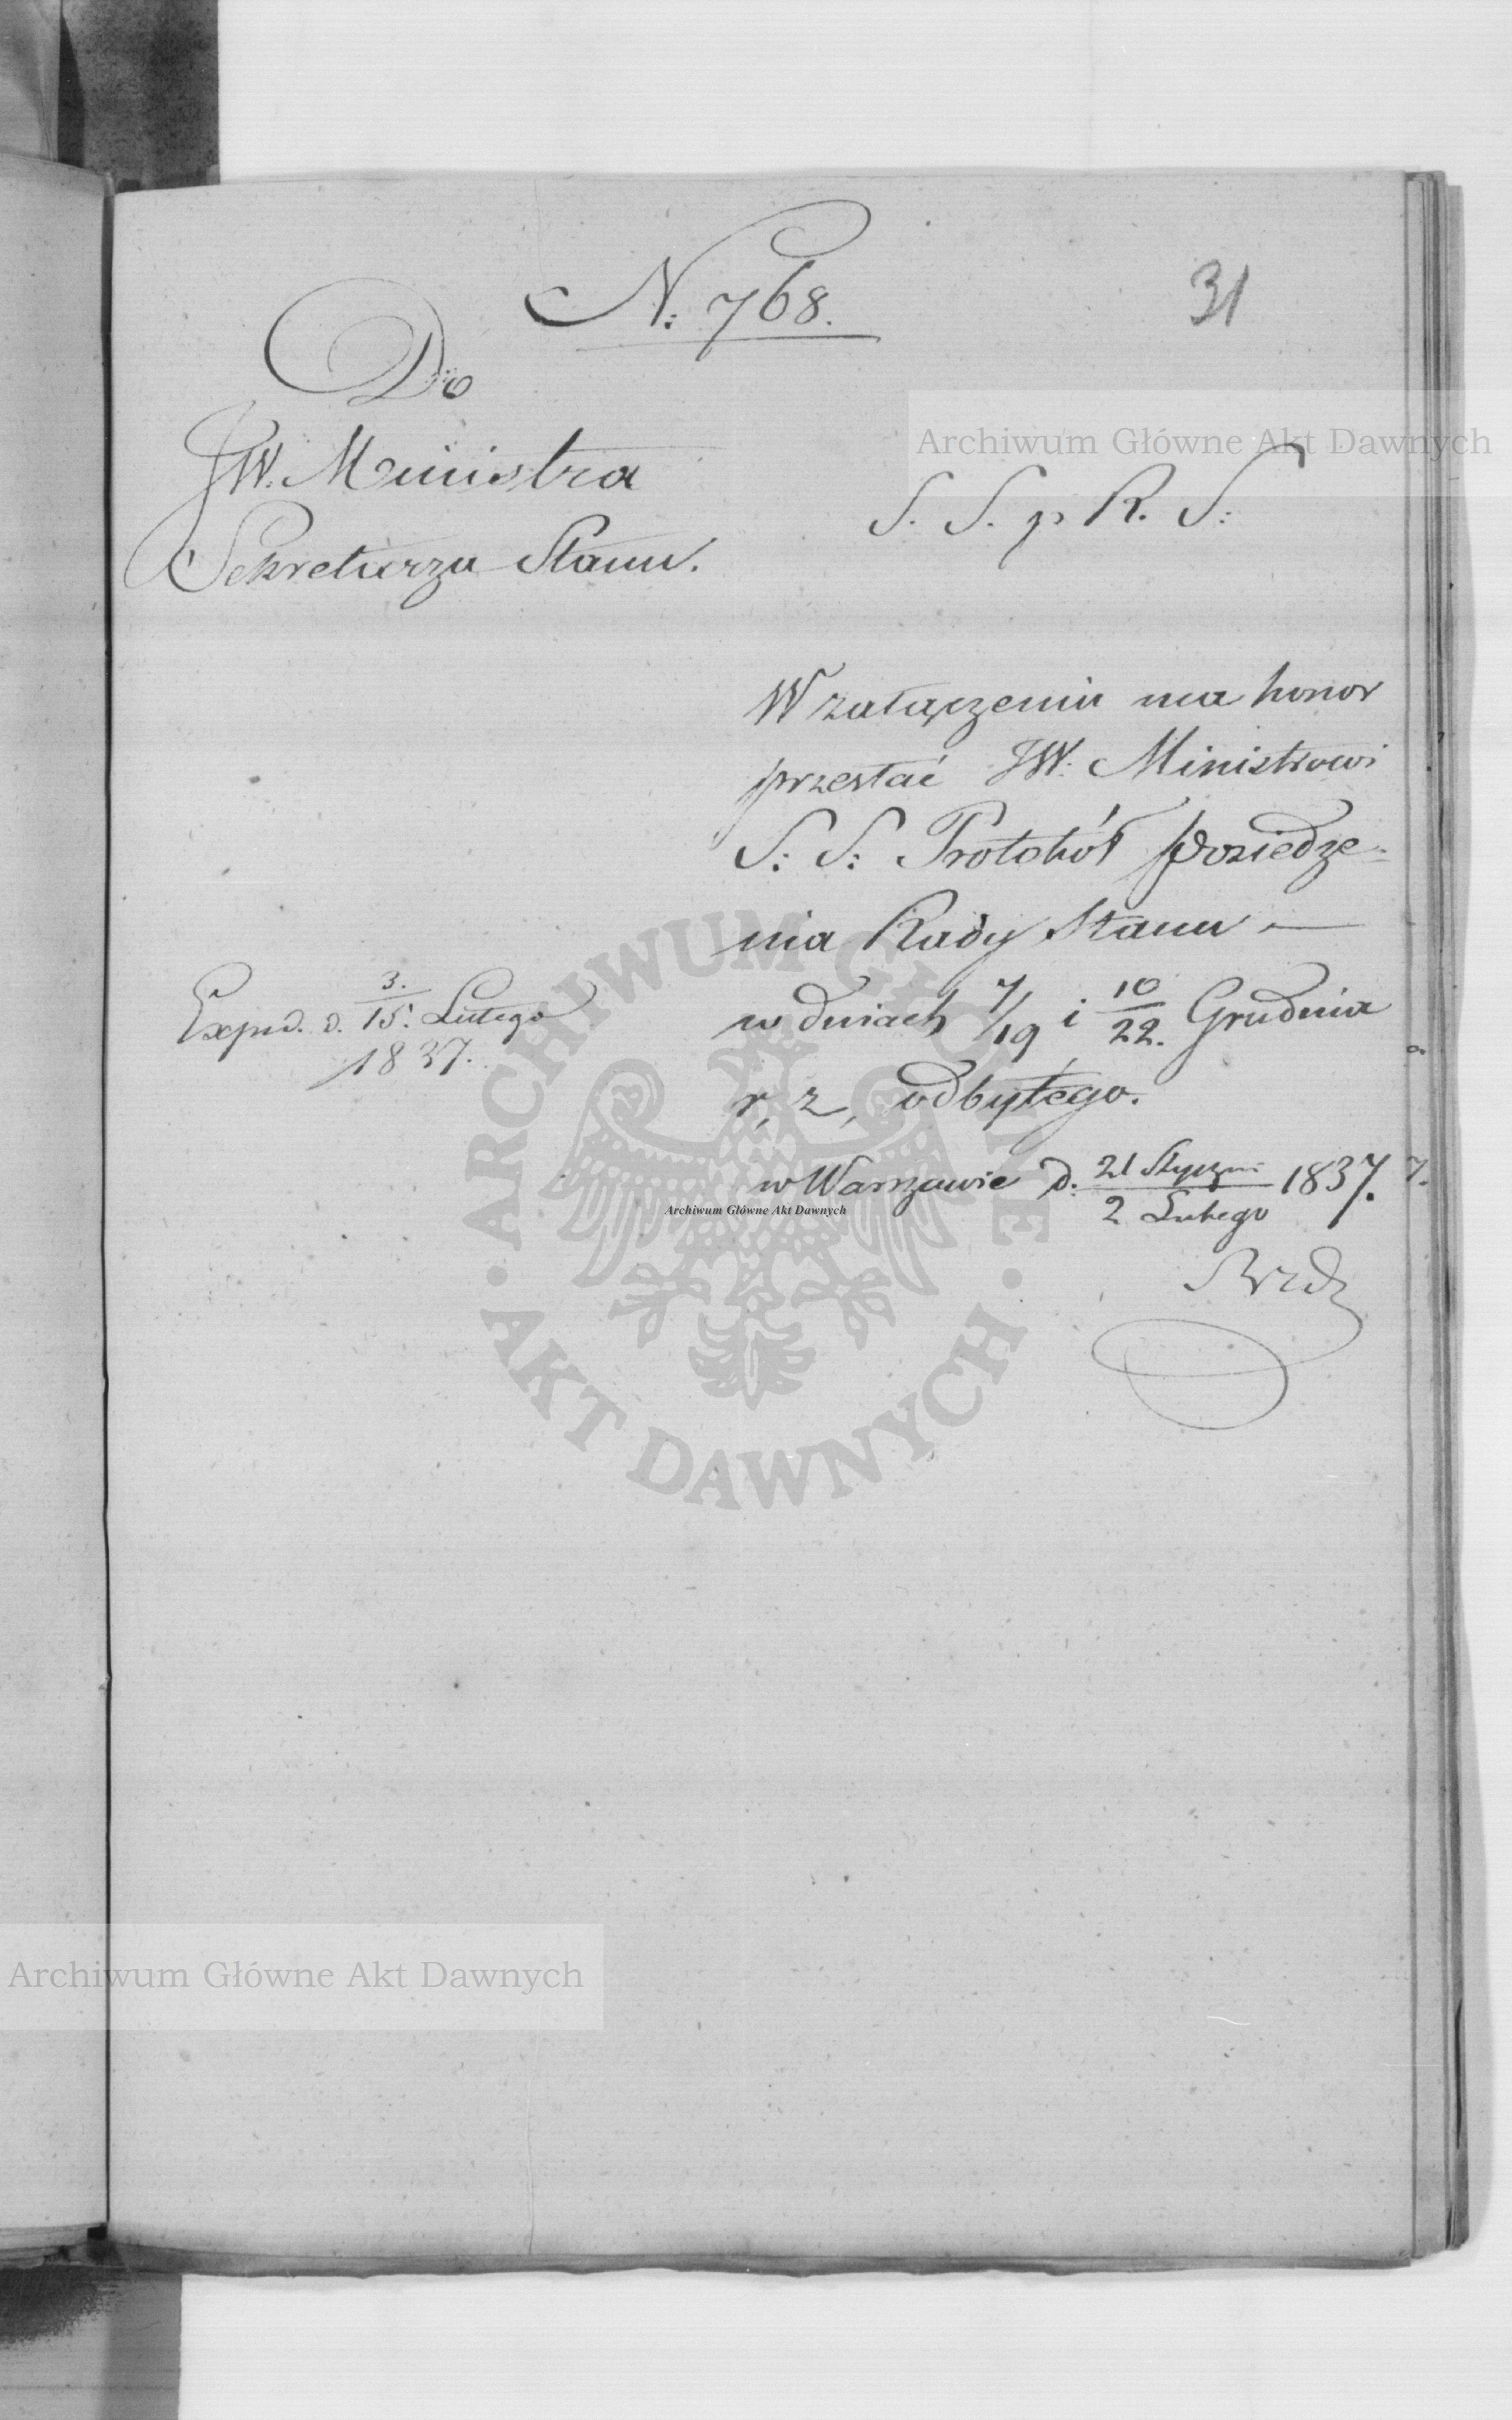 N: 768.
31
Do
JW. Ministra
Sekretarza Stanu.
Archiwum Główne Akt Dawnych
S. S. p R. S:
W załączeniu ma honor
przesłać JW. Ministrowi
S: S: Protokół posiedze-
nia Rady Stanu —
w dniach 7/19 i 10/22. Grudnia
r, z, odbytego.
Exped. d. 3./15. Lutego
1837.
w Warszawie d. 21 Stycznia/2 Lutego 1837.
ARCHIWUM GŁÓWNE
AKT DAWNYCH
Archiwum Główne Akt Dawnych
Archiwum Główne Akt Dawnych